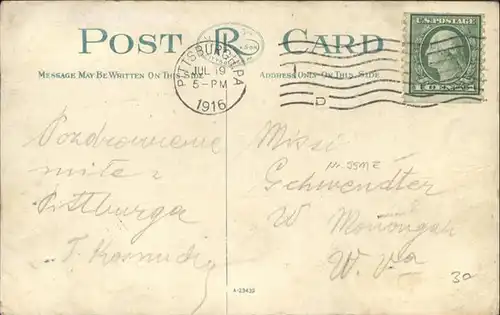 POST CARD
MESSAGE MAY BE WRITTEN ON THIS SIDE
ADDRESS ONLY ON THIS SIDE
PITTSBURGH, PA
JUL 19
5-PM
1916
D
U.S. POSTAGE
Pozdrowienie
miłe z
Pittburga
T.
Missi
Gehwendter
W Monongah
W. Va
30
A-23432